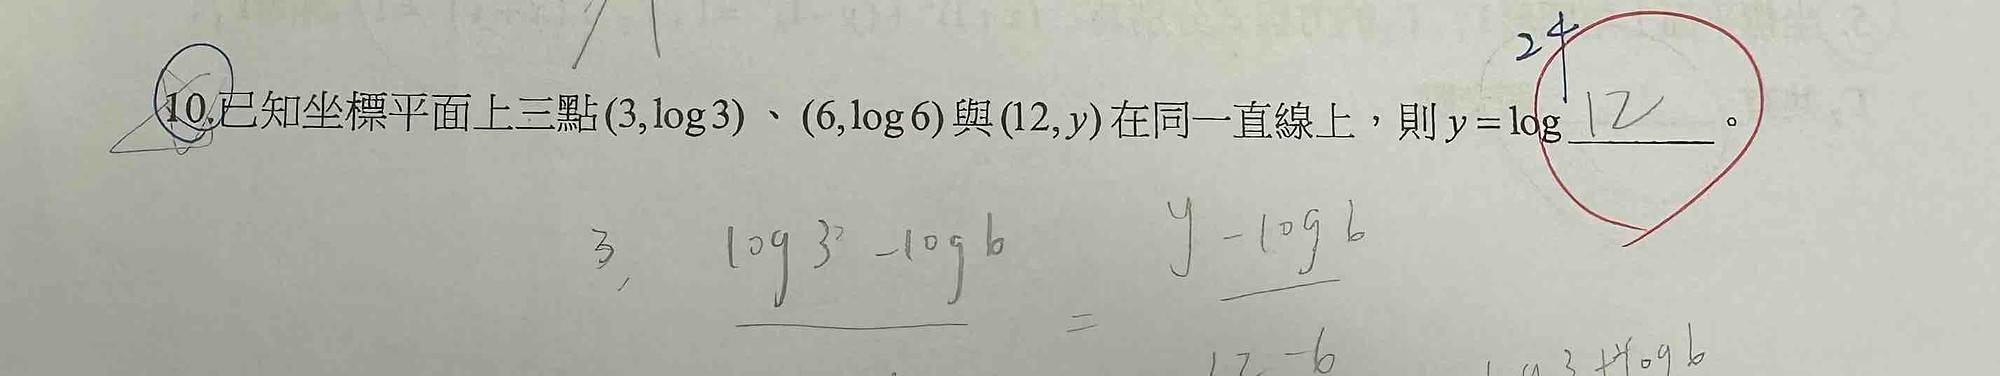 24
10.已知坐標平面上三點(3,log3)、(6,log6)與(12,y)在同一直線上,則y=log 12 。
3, log 3 - log 6 = y - log 6
12 - 6
log 6